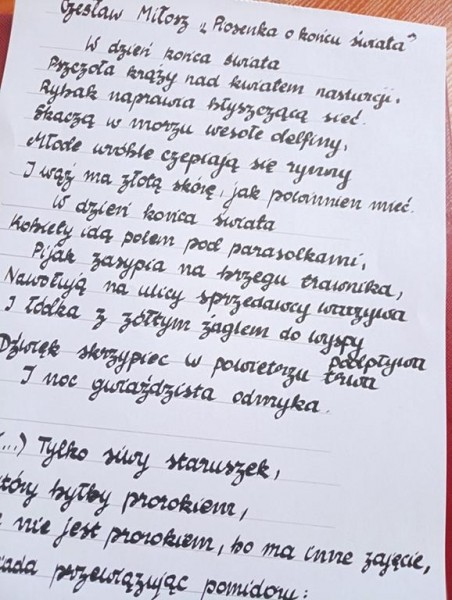 Czesław Miłosz „Piosenka o końcu świata”
W dzień końca świata
Pszczoła krąży nad kwiatem nasturcji,
Rybak naprawia błyszczącą sieć.
Skaczą w morzu wesołe delfiny,
Młode wróble czepiają się rynny
I wąż ma złotą skórę, jak powinien mieć.
W dzień końca świata
Kobiety idą polem pod parasolkami,
Pijak zasypia na brzegu trawnika,
Nawołują na ulicy sprzedawcy warzywa
I łódka z żółtym żaglem do wyspy
podpływa
Dźwięk skrzypiec w powietrzu trwa
I noc gwiaździstą odmyka.
(...) Tylko siwy staruszek,
który byłby prorokiem,
nie jest prorokiem, bo ma inne zajęcie,
iada przewiązując pomidory: